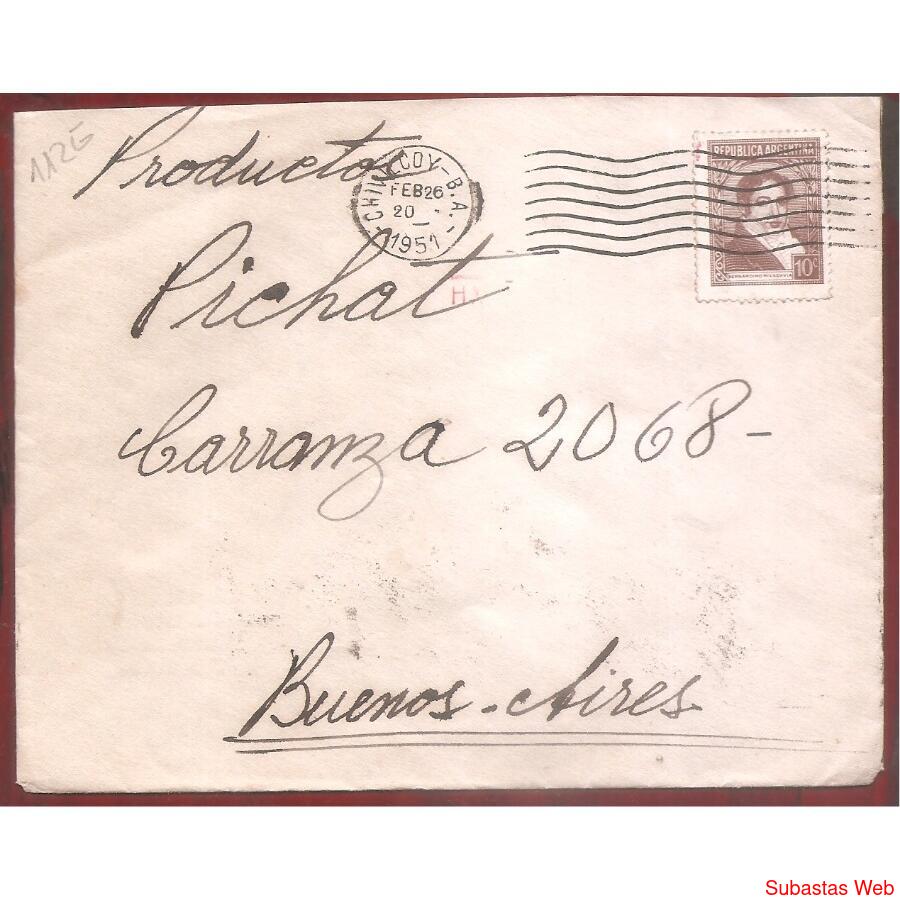 112E
Productos
CHIVILCOY - B.A. -
FEB 26
20 -
1951
REPUBLICA ARGENTINA
BERNARDINO RIVADAVIA
10c
Pichat
Carranza 2068-
Buenos-Aires
Subastas Web